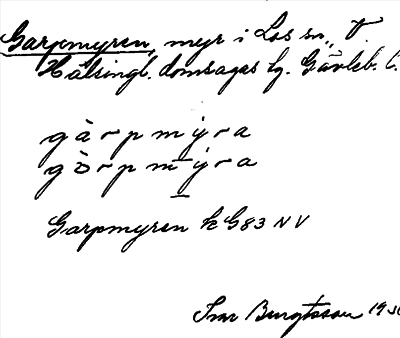 Garpmyren, myr i Los sn., V.
Hälsingl. domsagas tg. Gävleb. l.
gàrpmýra
gòrpmýra
Garpmyren k G83 NV
Ivar Bengtsson 193